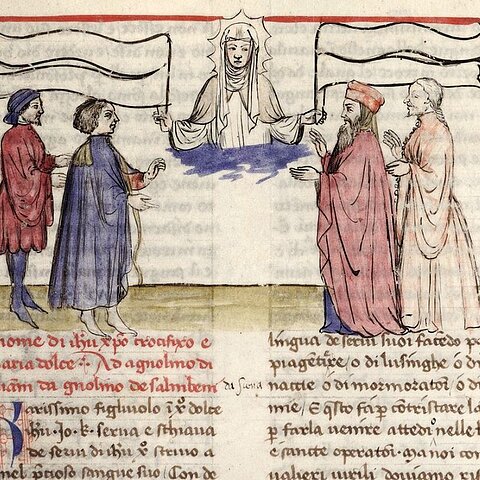 nome di ihu xpo crocifixo e
maria dolce Ad agnolino di
giani da gnolino de salimbem di siena
Carissimo figluolo i xpo dolce
ihu. Jo. k. serva e schiava
de servi di ihu xpo scrivo a
nel ptioso sangue suo. Con de
lingua de servi suoi facēdo
piagētire, o di lusinghe, ō di
nattie, o di mormoratōi, o di
mie, E qsto fa p contristare la
p farla venire attedio nelle
e sancte operatoi. ma noi com
valieri virili doviamo